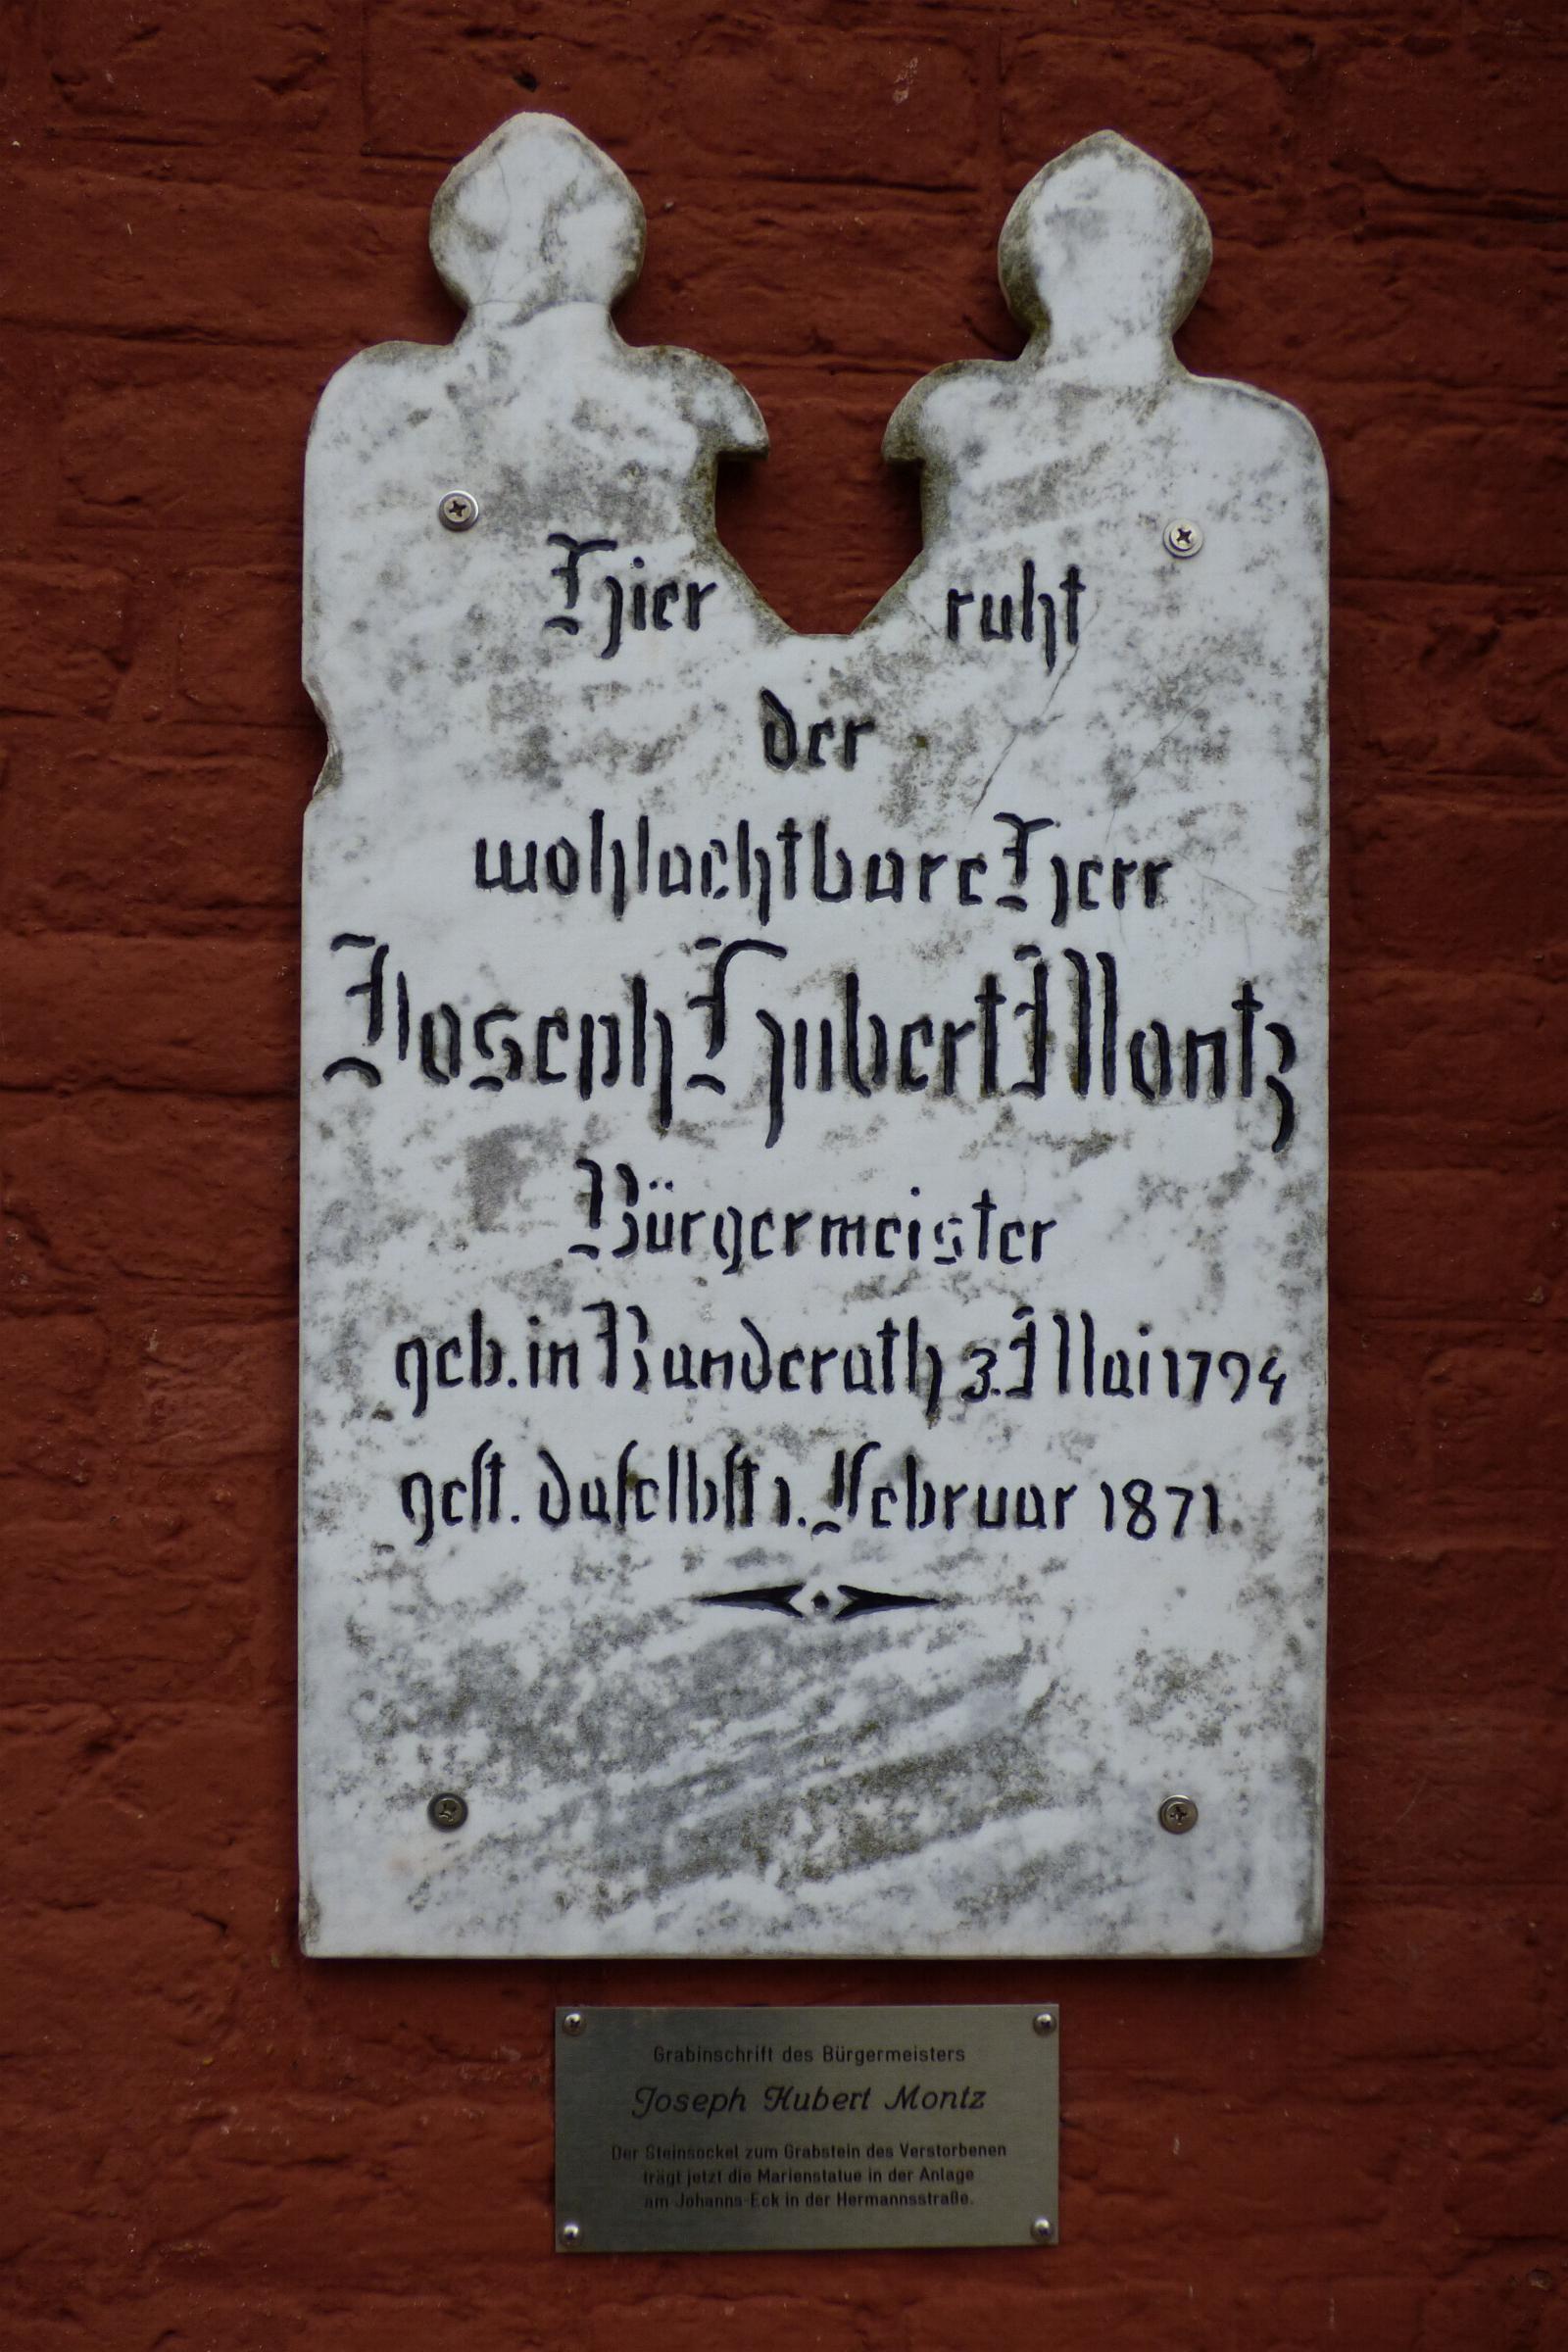 Hier ruht
der
wohlachtbare Herr
Joseph Hubert Montz
Bürgermeister
geb. in Randerath 3. Mai 1794
gest. daselbst 1. Februar 1871
Grabinschrift des Bürgermeisters
Joseph Hubert Montz
Der Steinsockel zum Grabstein des Verstorbenen
trägt jetzt die Marienstatue in der Anlage
am Johanna-Eck in der Hermannsstraße.